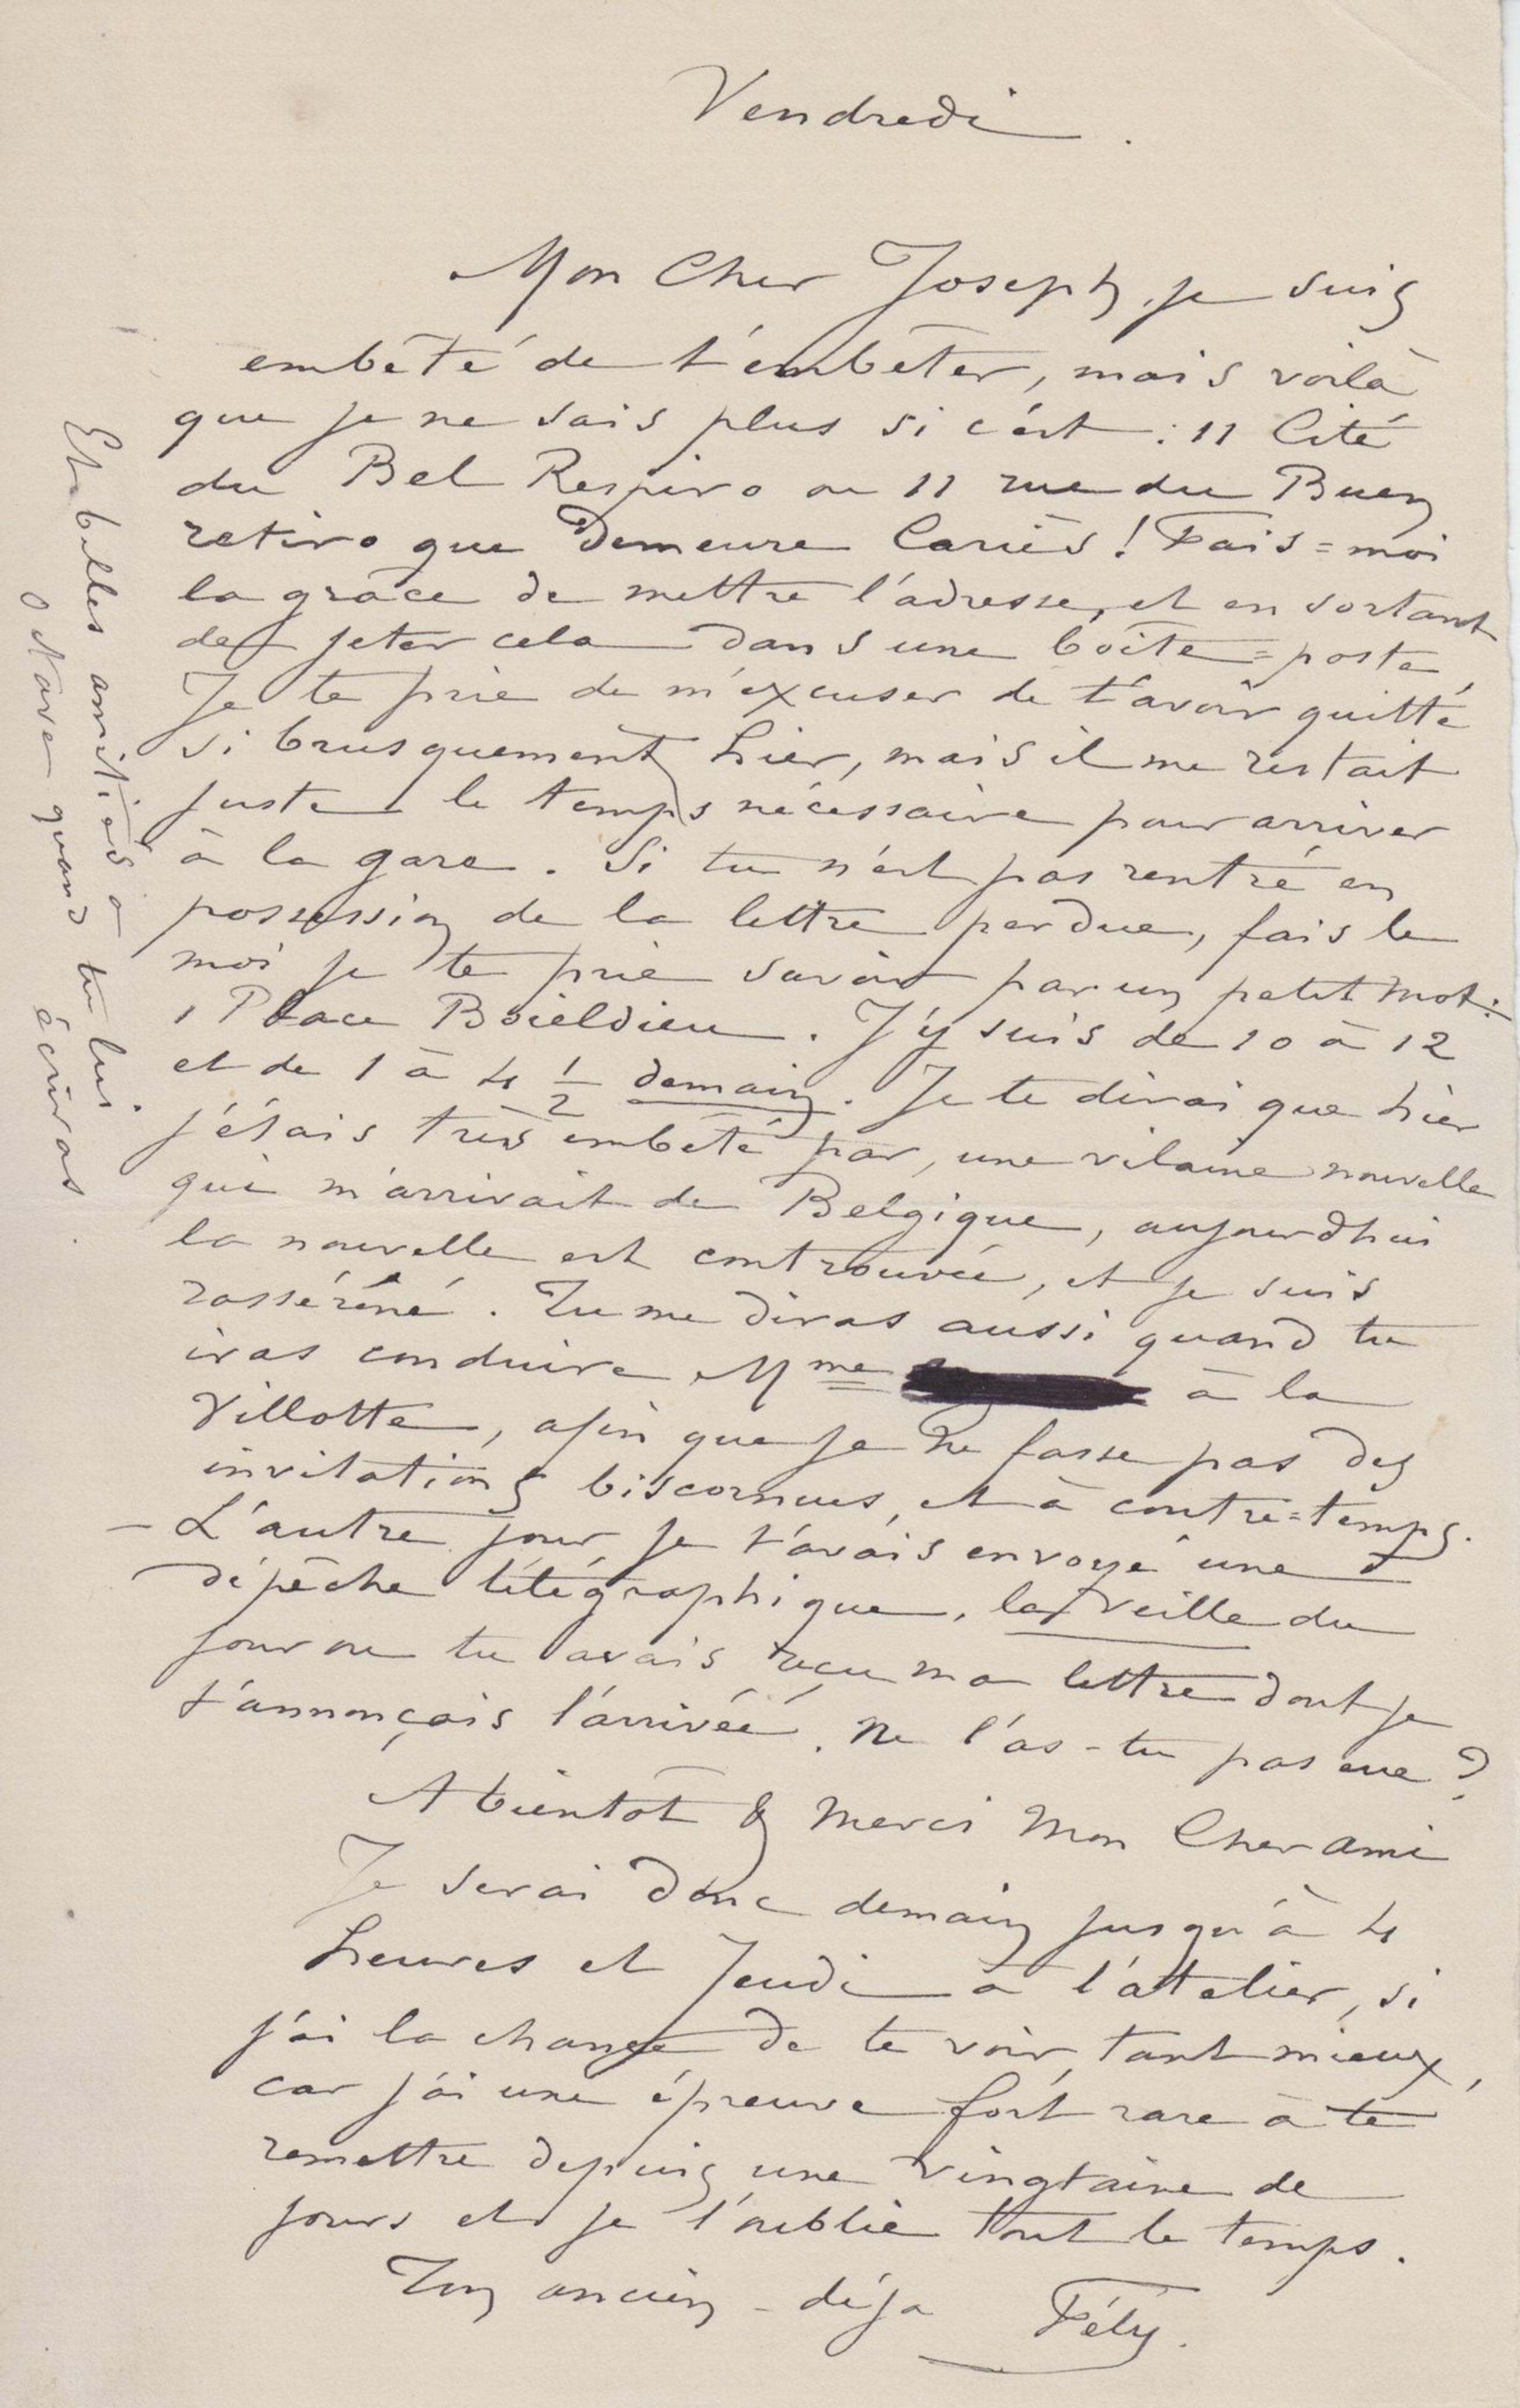 Vendredi.
Mon Cher Joseph, je suis
embêté de t'embêter, mais voilà
que je ne sais plus si c'est : 11 Cité
du Bel Respiro ou 11 rue du Buen
retiro que demeure Cariès ! Fais=moi
la grâce de mettre l'adresse, et en sortant
de jeter cela dans une boîte=poste,
Je te prie de m'excuser de t'avoir quitté
si brusquement hier, mais il me restait
juste le temps nécessaire pour arriver
à la gare. Si tu n'est pas rentré en
possession de la lettre perdue, fais le
moi je te prie savoir par un petit mot :
1 Place Boieldieu. J'y suis de 10 à 12
et de 1 à 4 ½ demain. Je te dirai que hier
j'étais très embêté par, une vilaine nouvelle
qui m'arrivait de Belgique, aujourdhui
la nouvelle est controuvée, et je suis
rasséréné. Tu me diras aussi quand tu
iras conduire Mme à la
Villotte, afin que je ne fasse pas des
invitations biscornues, et à contre=temps.
– L'autre jour je t'avais envoyé une
dépêche télégraphique, la veille du
jour ou tu avais reçu ma lettre dont je
t'annonçais l'arrivée. Ne l'as-tu pas eue ?
A bientôt & Merci Mon Cher ami
Je serai donc demain jusqu'à 4
heures et Jeudi à l'atelier, si
j'ai la chance de te voir, tant mieux,
car j'ai une épreuve fort rare à te
remettre depuis une vingtaine de
jours et je l'oublie tout le temps.
Ton ancien – déja Fély.
Et belles amitiés à
Octave quand tu lui
écriras.